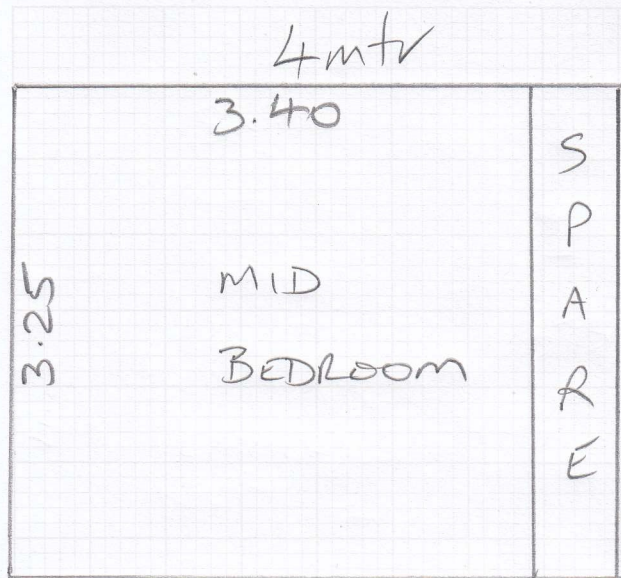 4mtr
3.40
3.25
MID
BEDROOM
SPARE